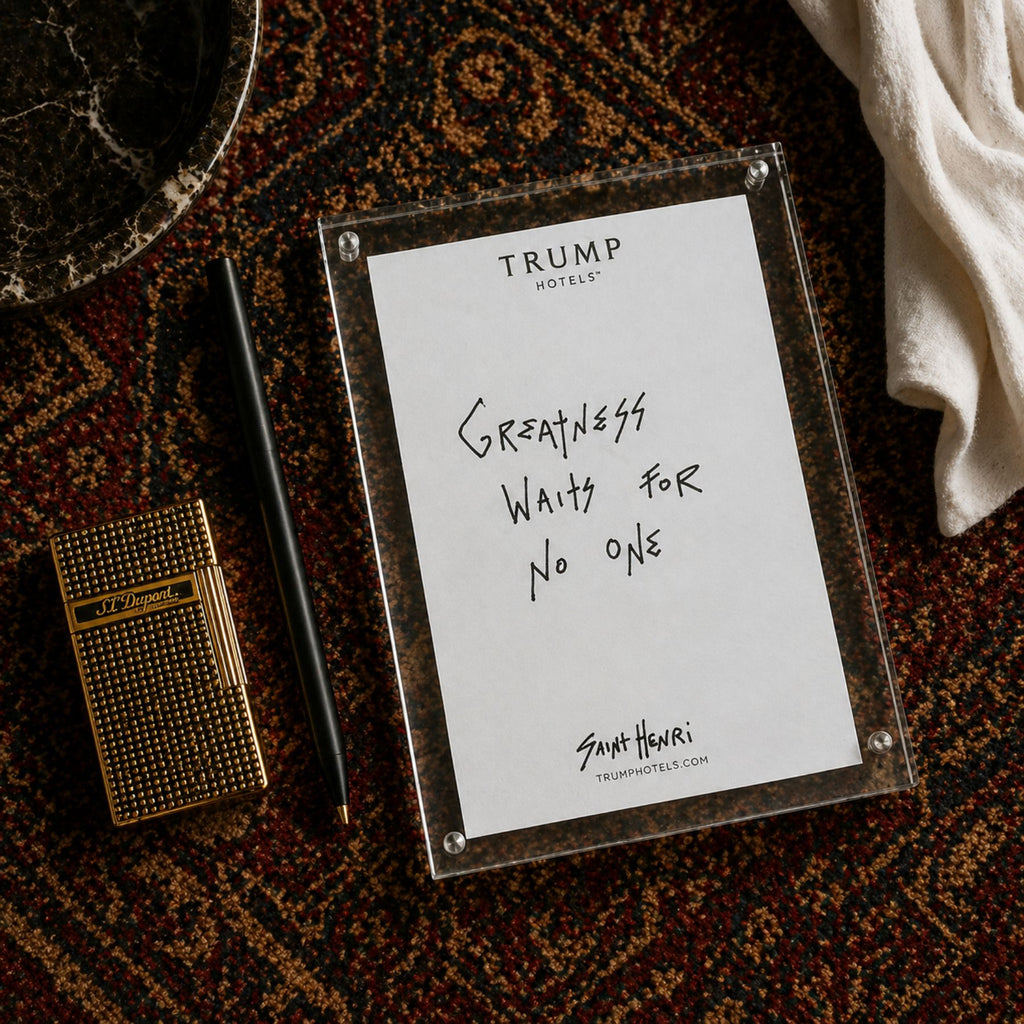 TRUMP
HOTELS™
GREATNESS
WAITS FOR
NO ONE
SAINT HENRI
TRUMPHOTELS.COM
S.T. Dupont.